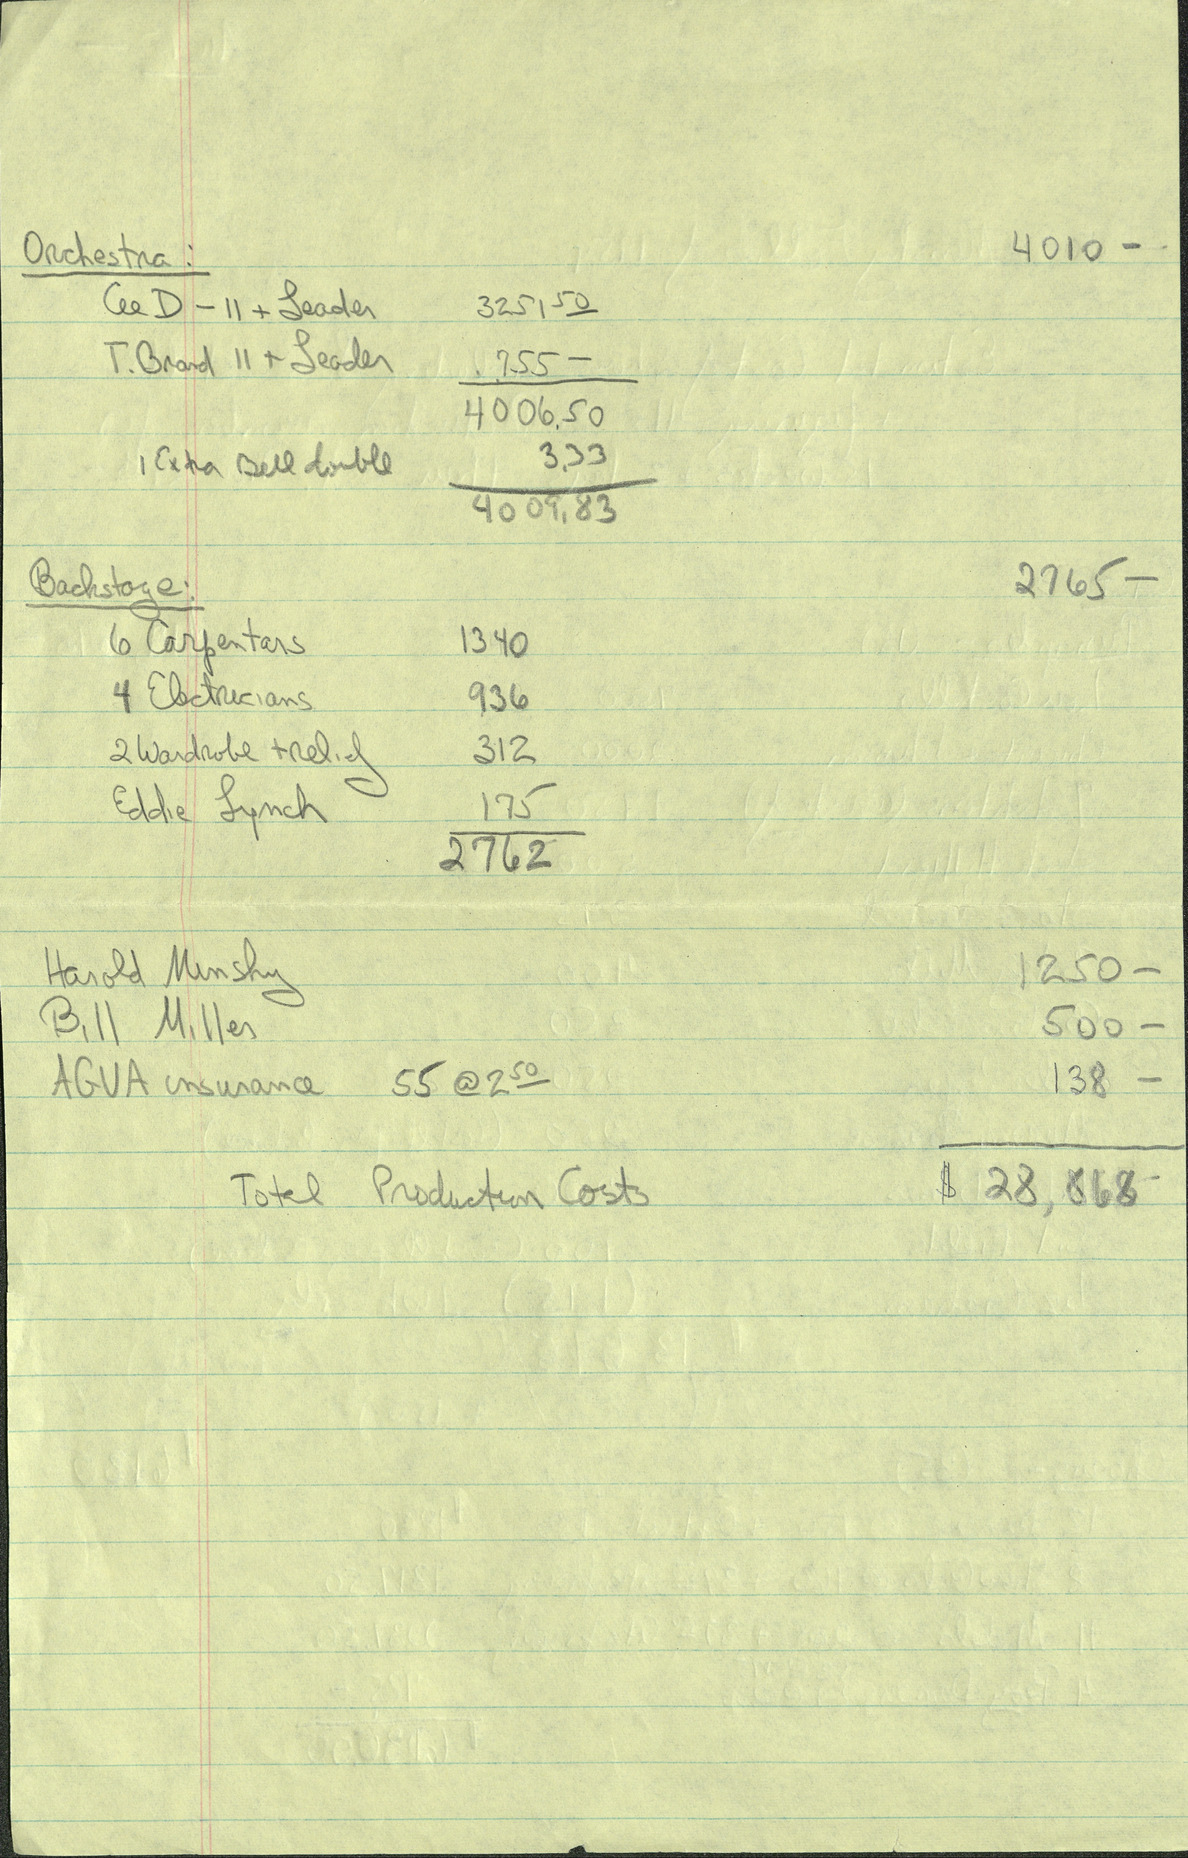 Orchestra: 4010 -
Cee D - 11 + Leader 3251 50
T. Brand 11 + Leader 755 -
4006.50
1 Extra Bell double 3.33
4009.83
Backstage: 2765 -
6 Carpentars 1340
4 Electricians 936
2 Wardrobe + relief 312
Eddie Lynch 175
2762
Harold Minsky 1250 -
Bill Miller 500 -
AGVA insurance 55 @ 2 50 138 -
Total Production Costs $ 28,868 -